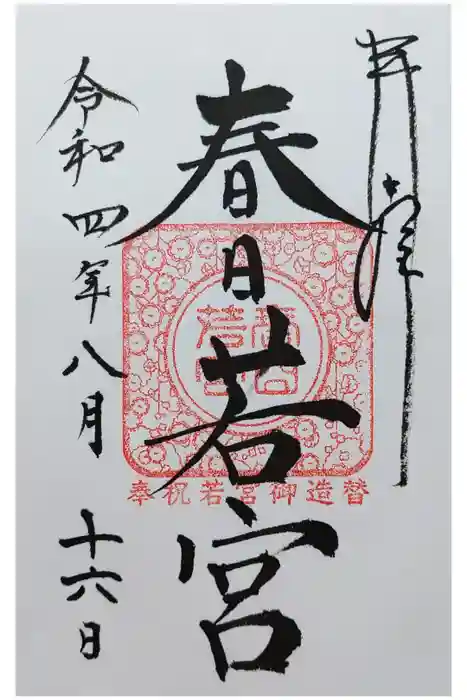 奉拝
春日若宮
奉祝若宮御造替
令和四年八月十六日